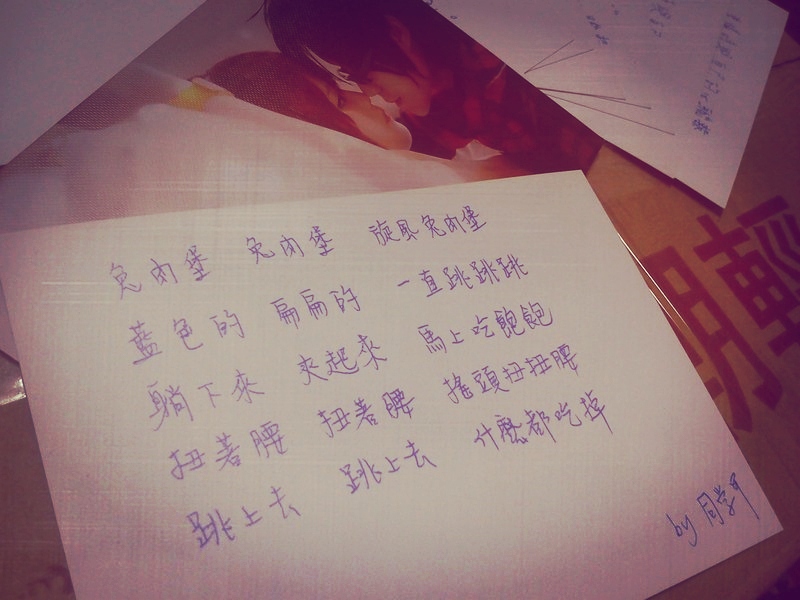 兔肉堡 兔肉堡 旋風兔肉堡
藍色的 扁扁的 一直跳跳跳
躺下來 夾起來 馬上吃飽飽
扭著腰 扭著腰 搖頭扭扭腰
跳上去 跳上去 什麼都吃掉
by 同学甲